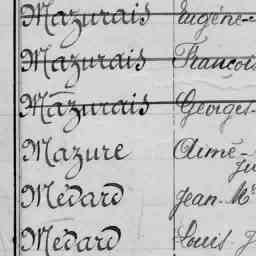 Mazurais Eugène-
Mazurais François
Mazurais Georges-
Mazure Aimé-
Médard Jean-M
Médard Louis-